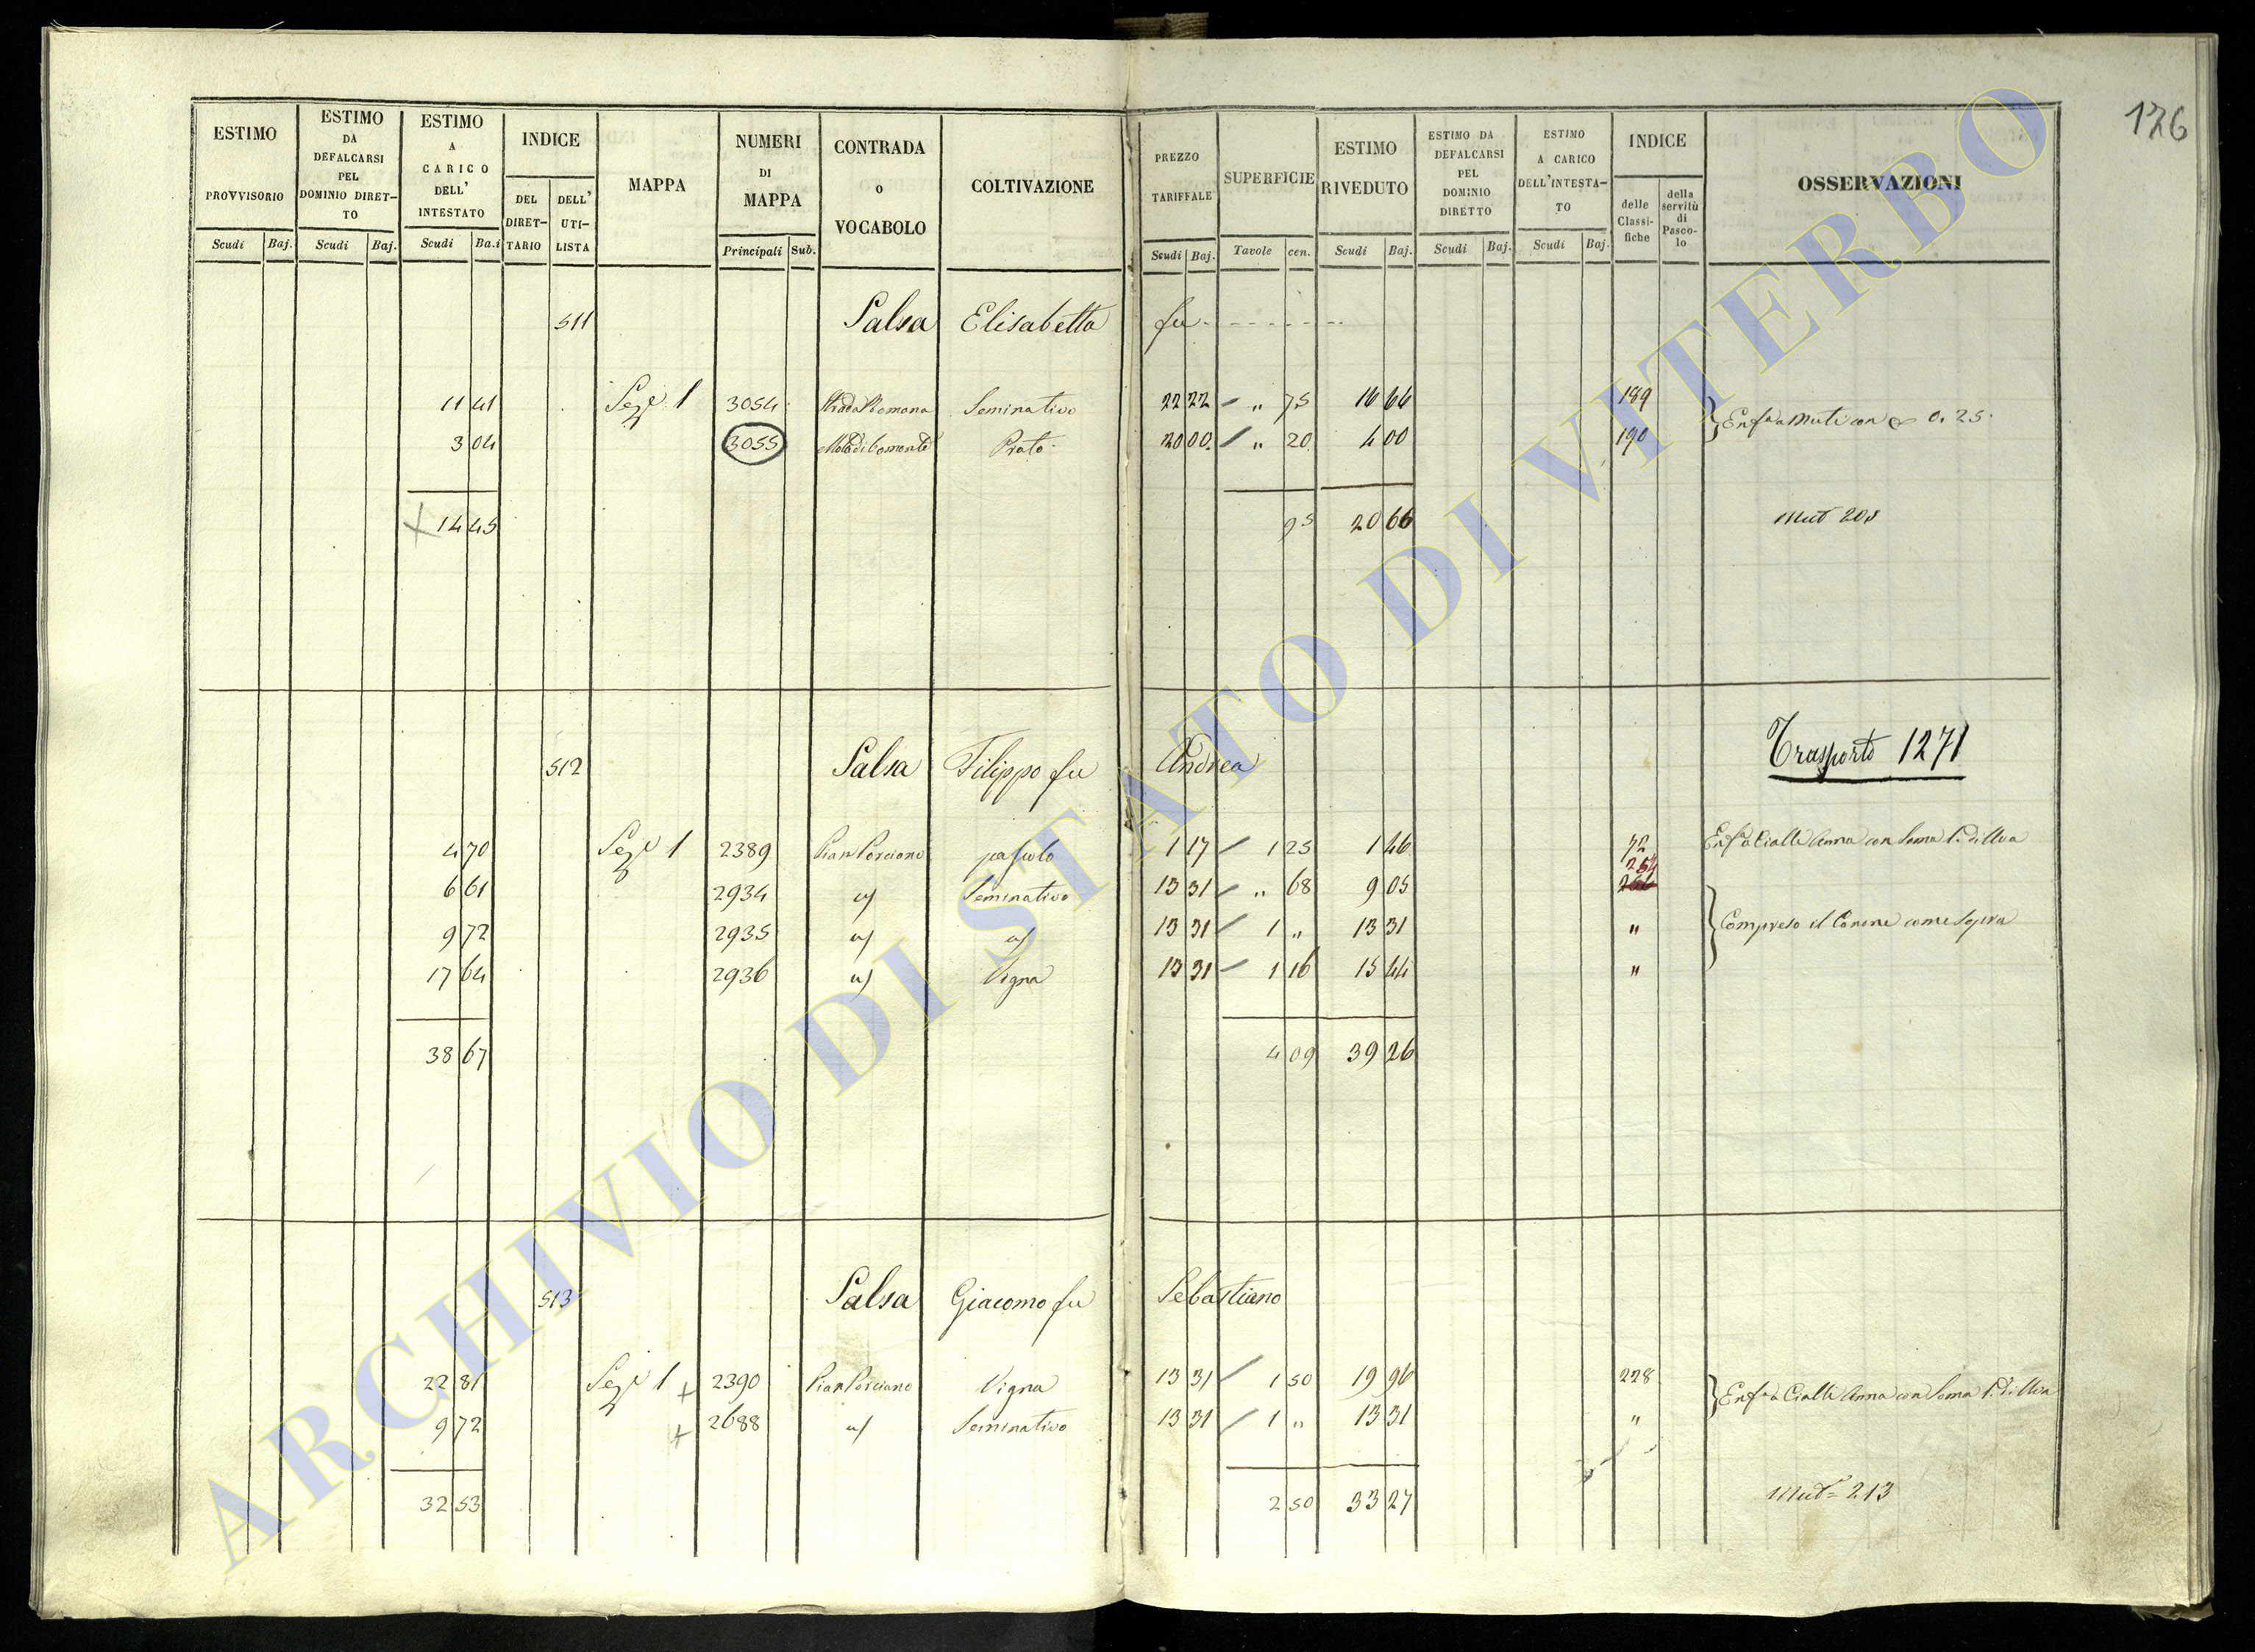 126
ESTIMO PROVVISORIO Scudi Baj. ESTIMO DA DEFALCARSI PEL DOMINIO DIRETTO Scudi Baj. ESTIMO A CARICO DELL' INTESTATO Scudi Ba.i INDICE DEL DIRETTARIO DELL' UTILISTA MAPPA NUMERI DI MAPPA Principali Sub. CONTRADA O VOCABOLO COLTIVAZIONE PREZZO TARIFFALE Scudi Baj. SUPERFICIE Tavole cen. ESTIMO RIVEDUTO Scudi Baj. ESTIMO DA DEFALCARSI PEL DOMINIO DIRETTO Scudi Baj. ESTIMO A CARICO DELL'INTESTATO Scudi Baj. INDICE delle Classifiche della servitù di Pascolo OSSERVAZIONI
511 Salsa Elisabetta fu
11 41 Sez.e 1 3054 Strada Romana Seminativo 22 22 " 75 16 66 189
3 04 3055 Prato 20 00 " 20 4 00 190
0. 25
14 45 95 20 66 Mut 205
512 Salsa Filippo fu Andrea Trasporto 1271
4 70 Sez.e 1 2389 Pian Porciano pascolo 1 17 1 25 1 46 72 Enf.a a Cialli Anna con Soma P. di Uva
6 61 2934 " Seminativo 13 31 " 68 9 05 254
9 72 2935 " " 13 31 1 " 13 31 " Compreso il Canone come sopra
17 64 2936 " Vigna 13 31 1 16 15 44 "
38 67 4 09 39 26
513 Salsa Giacomo fu Sebastiano
22 81 Sez.e 1 + 2390 Pian Porciano Vigna 13 31 1 50 19 96 228 Enf.a a Cialli Anna con Soma P. di Uva
9 72 + 2688 " Seminativo 13 31 1 " 13 31 "
32 53 2 50 33 27 Mut= 213
ARCHIVIO DI STATO DI VITERBO